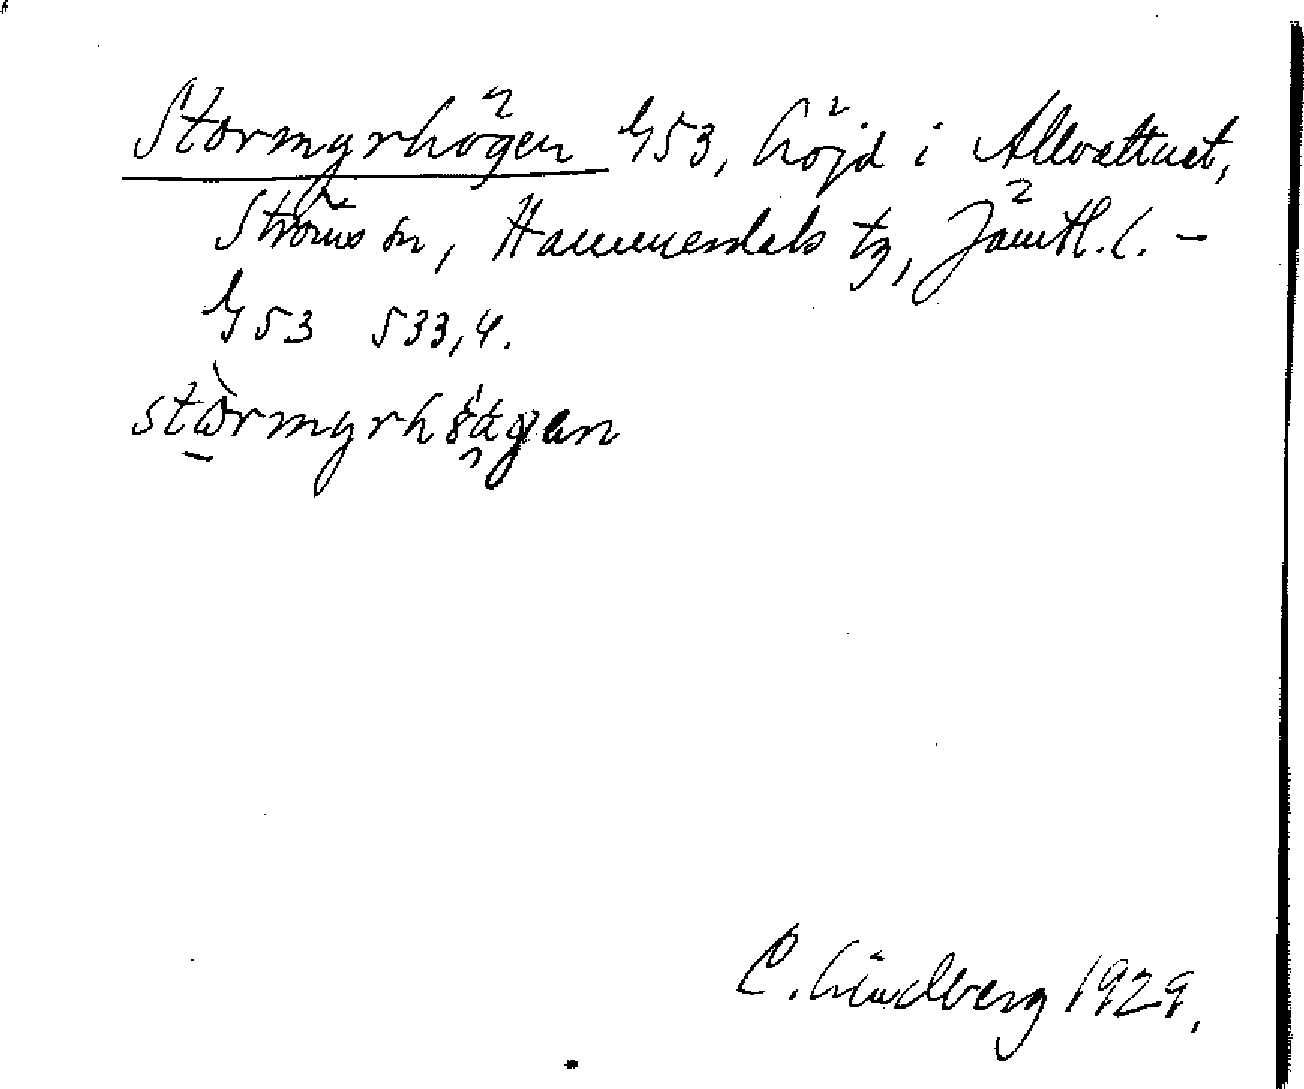 Stormyrhögen G53, höjd i Allvattnet,
Ströms sn, Hammerdals tg, Jämtl. l. –
G53 533,4.
stormyrh
C. Lindberg 1929.